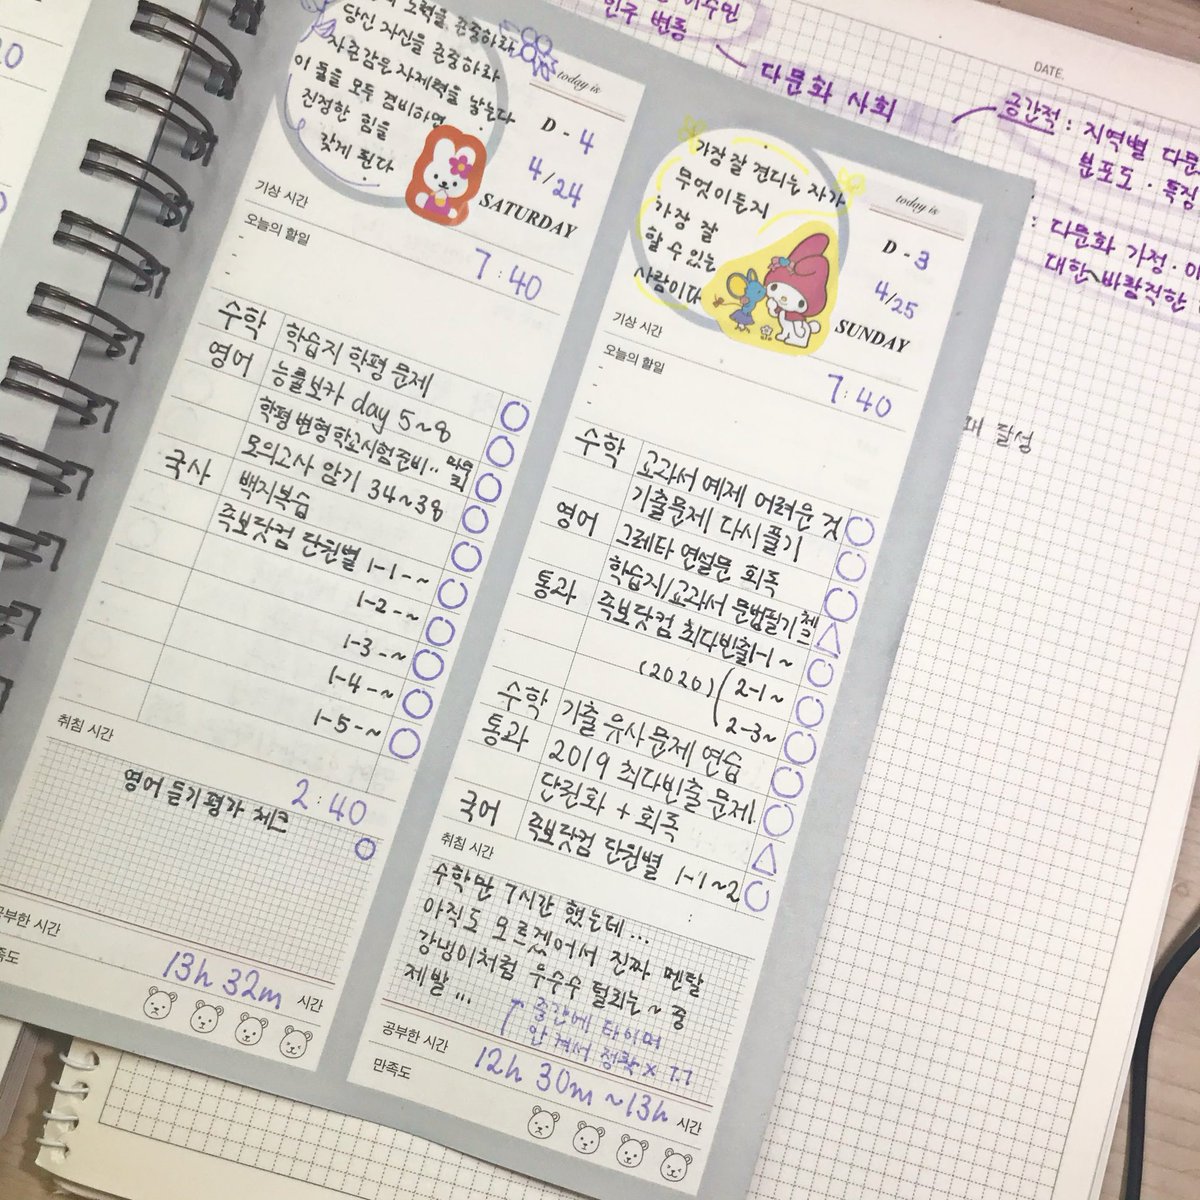 노력을 존중하라
당신 자신을 존중하라
자존감은 자제력을 낳는다
이 둘을 모두 겸비하면
진정한 힘을
갖게 된다
today is
D - 4
4/24
SATURDAY
기상 시간
7:40
오늘의 할일
수학 학습지 학평 문제
영어 능률보카 day 5~8
학평 변형 학교시험준비..
모의고사 암기 34~38
국사 백지복습
족보닷컴 단원별 1-1-~
1-2-~
1-3-~
1-4-~
1-5-~
취침 시간
2:40
영어 듣기평가 체크
공부한 시간
13h 32m 시간
만족도
가장 잘 견디는 자가
무엇이든지
가장 잘
할 수 있는
사람이다
today is
D - 3
4/25
SUNDAY
기상 시간
7:40
오늘의 할일
수학 교과서 예제 어려운 것
기출문제 다시풀기
영어 그레타 연설문 회독
학습지/교과서 문법필기 체크
통과 족보닷컴 최다빈출1-1~
(2020) 2-1~
2-3~
수학 기출 유사문제 연습
통과 2019 최다빈출 문제
단원화 + 회독
국어 족보닷컴 단원별 1-1~2
취침 시간
:
수학만 7시간 했는데...
아직도 모르겠어서 진짜 멘탈
강냉이처럼 우수수 털리는~ 중
제발...
중간에 타이머
안 켜서 정확 x ㅜㅜ
공부한 시간
12h 30m ~13h 시간
만족도
인구 변동
다문화 사회
DATE.
공간적 : 지역별 다문
분포도 · 특징
: 다문화 가정 ·
대한 바람직한
달성